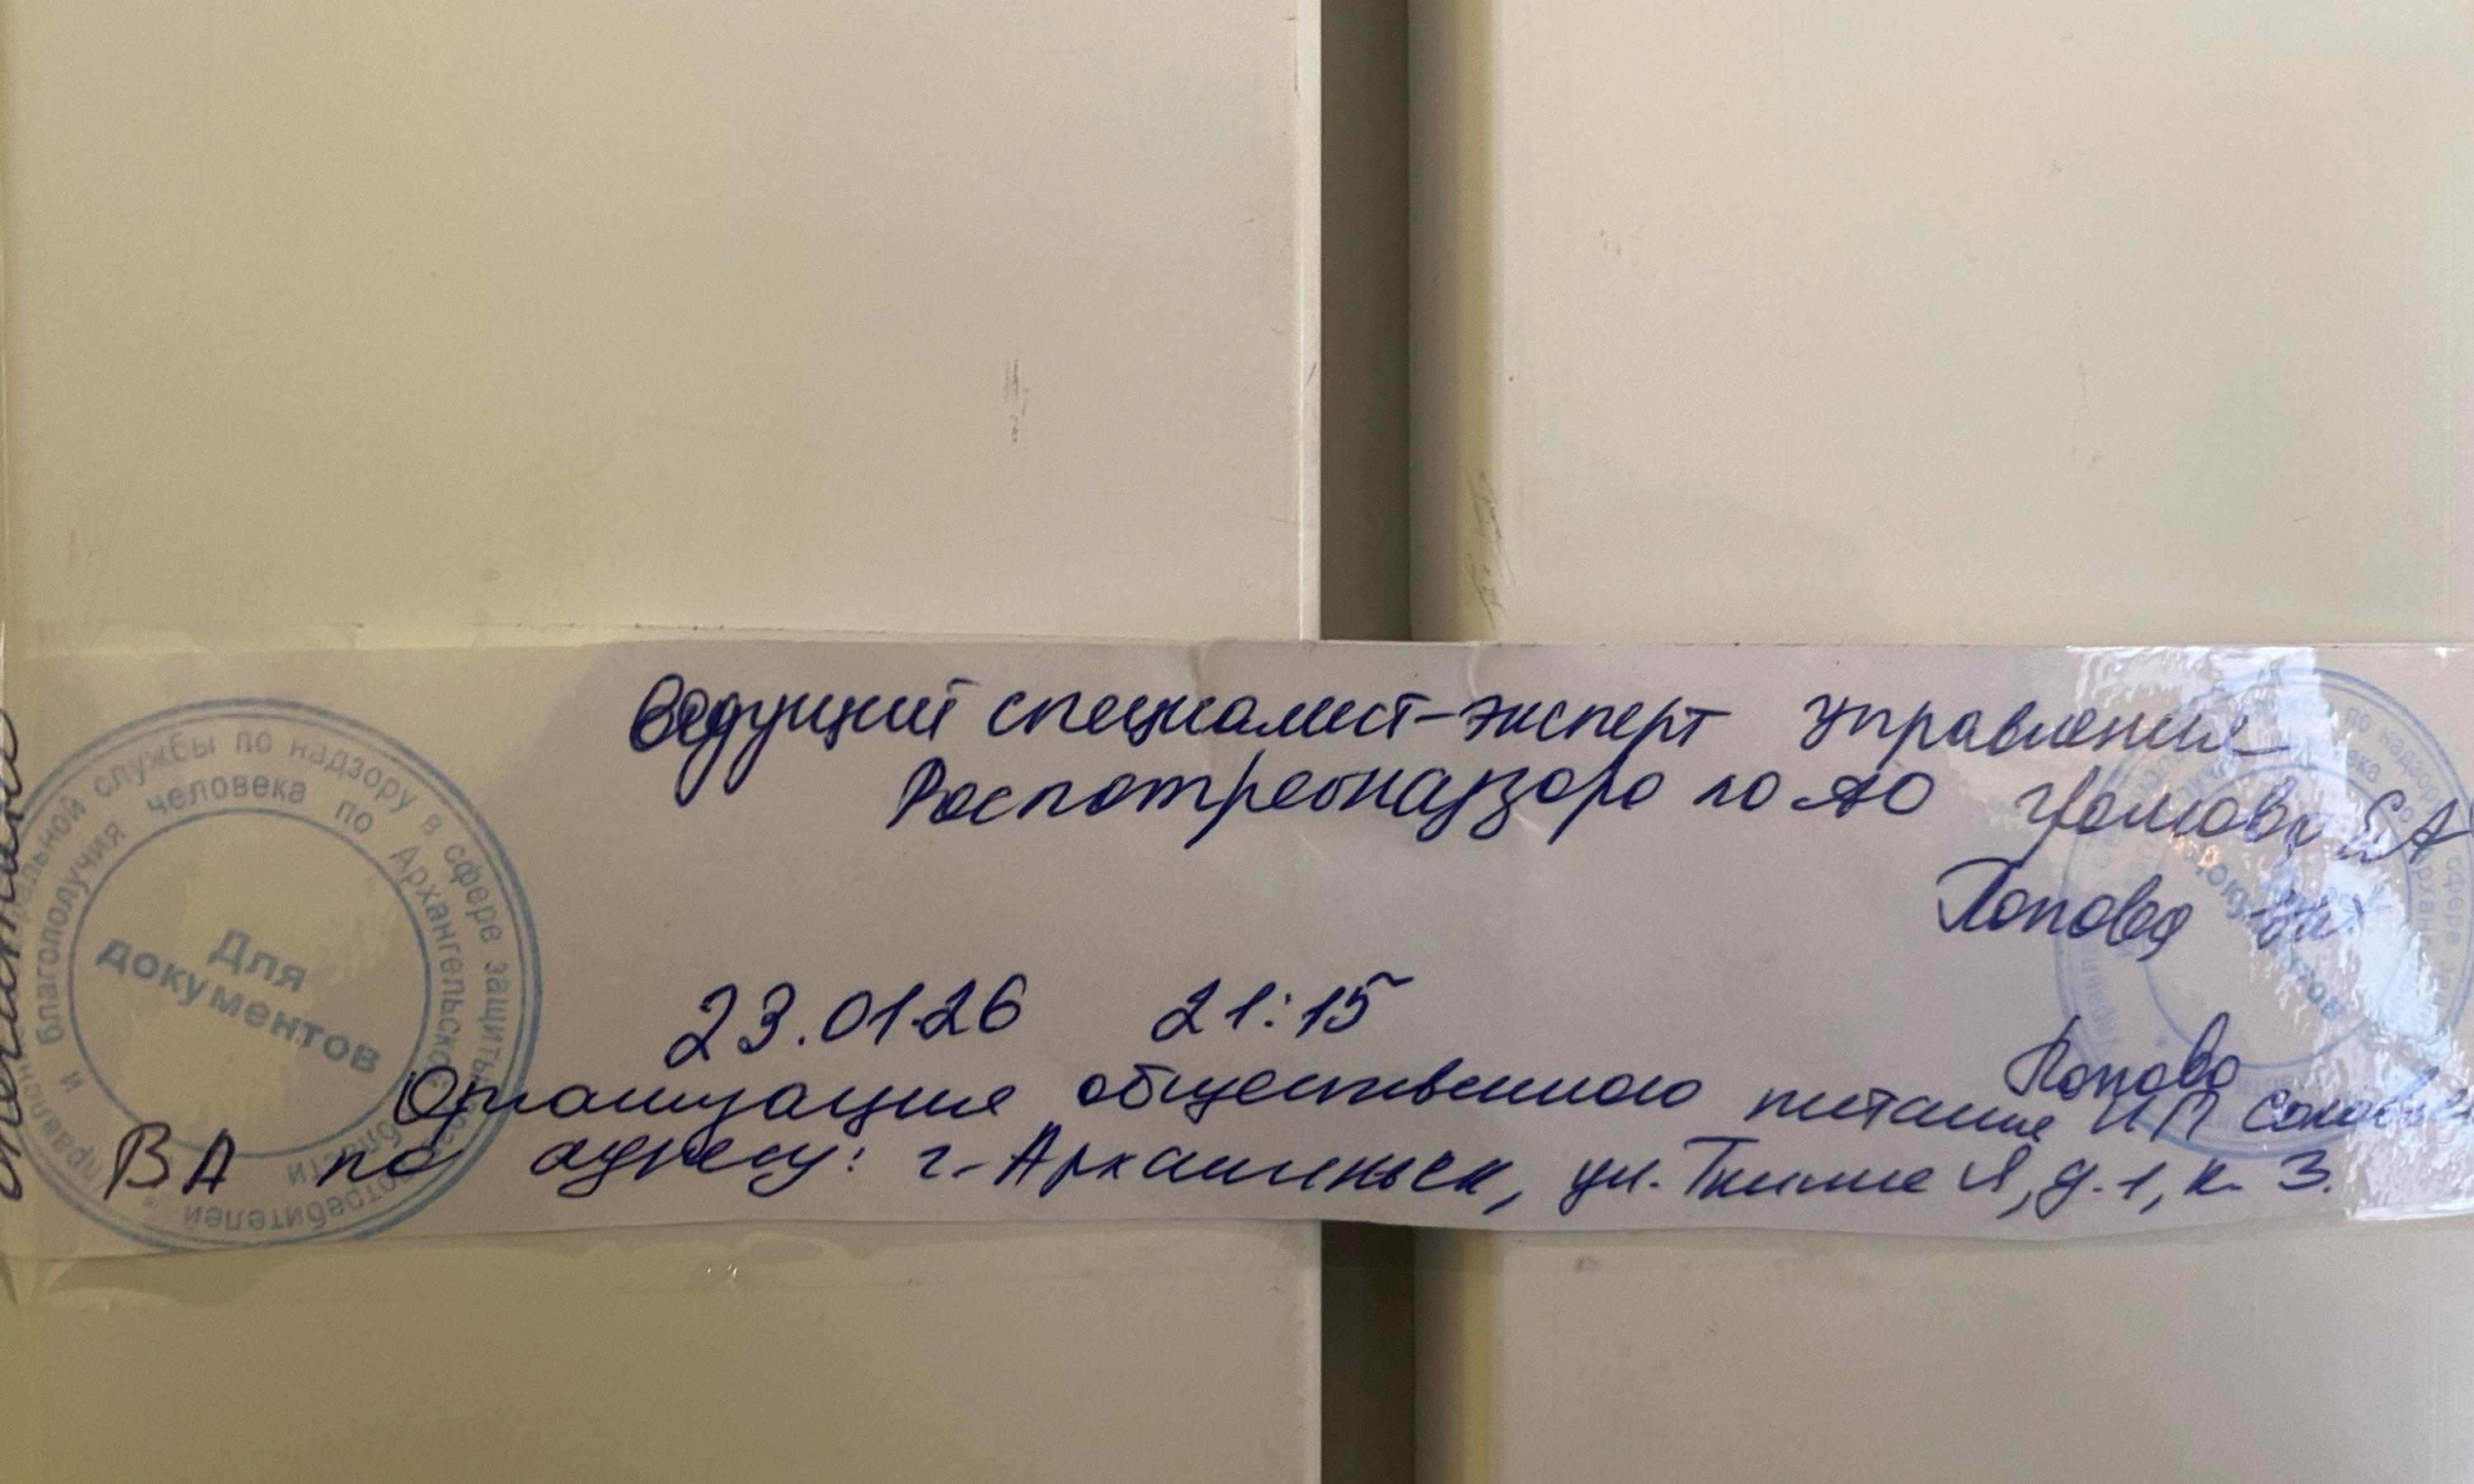 Ведущий специалист-эксперт управления
Роспотребнадзора по АО
Попова
23.01.26 21:15
Попова
Организация общественного питания ИП
ВА по адресу: г. Архангельск, ул. Тимме Я, д. 1, к. 3.
службы по надзору в сфере защиты
потребителей
и благополучия человека по Архангельской области
Для
документов